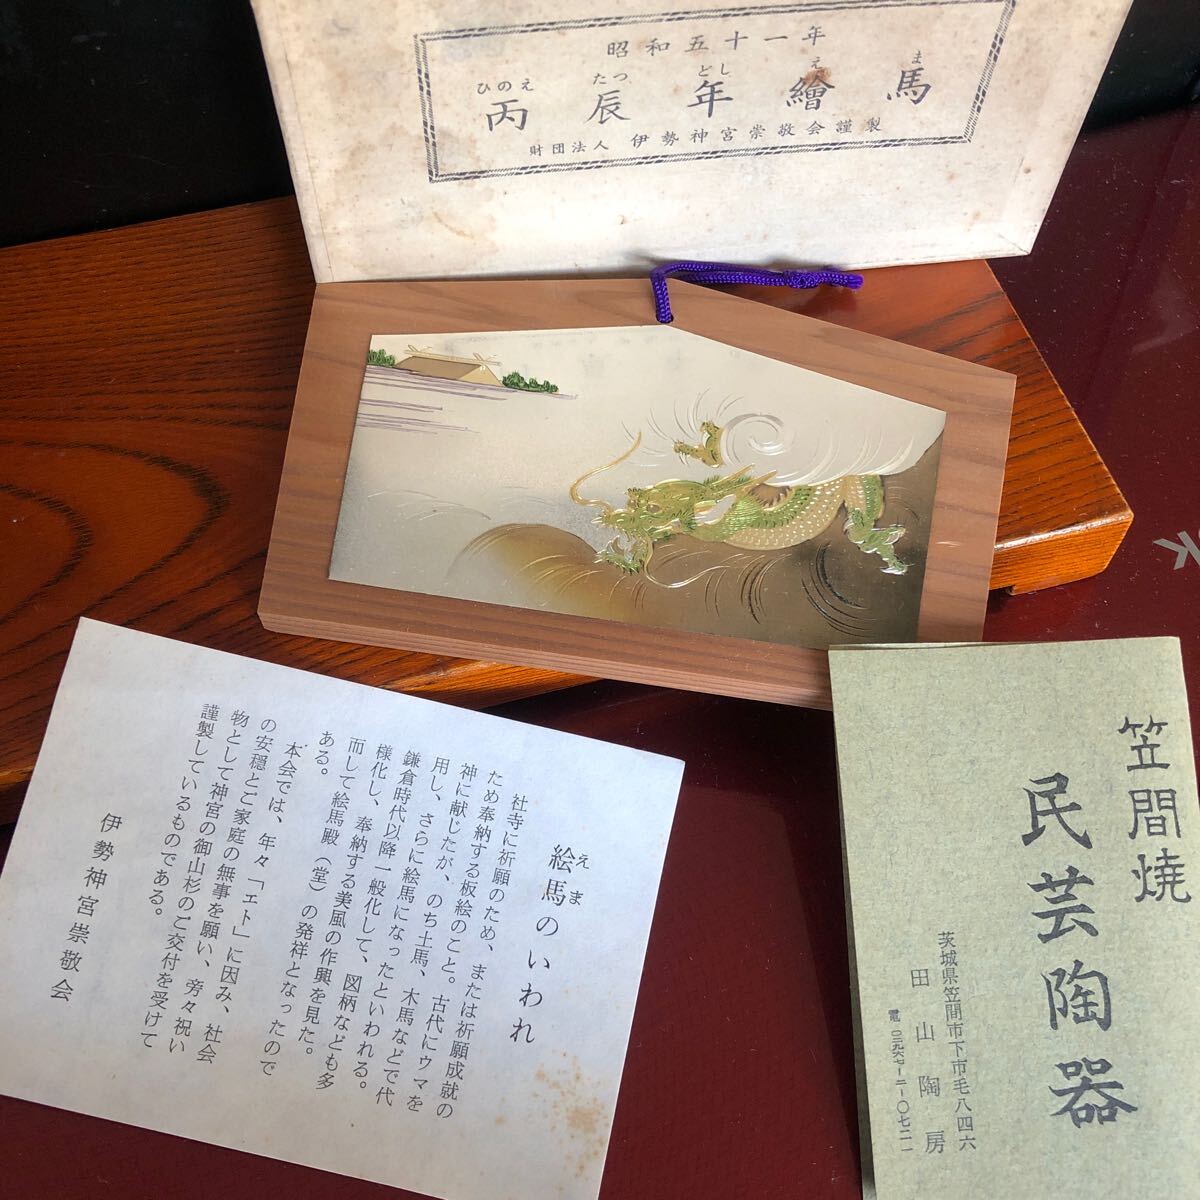 昭和五十一年
ひのえ たつ どし え ま
丙辰年繪馬
財団法人 伊勢神宮崇敬会謹製
絵馬のいわれ
えま
社寺に祈願のため、または祈願成就の
ため奉納する板絵のこと。古代にウマを
神に献じたが、のち土馬、木馬などで代
用し、さらに絵馬になったといわれる。
鎌倉時代以降一般化して、図柄なども多
様化し、奉納する美風の作興を見た。
而して絵馬殿（堂）の発祥となったので
ある。
本会では、年々「エト」に因み、社会
の安穏とご家庭の無事を願い、旁々祝い
物として神宮の御山杉のご交付を受けて
謹製しているものである。
伊勢神宮崇敬会
笠間焼
民芸陶器
茨城県笠間市下市毛八四六
田山陶房
電 〇二九六七-二-〇七二一